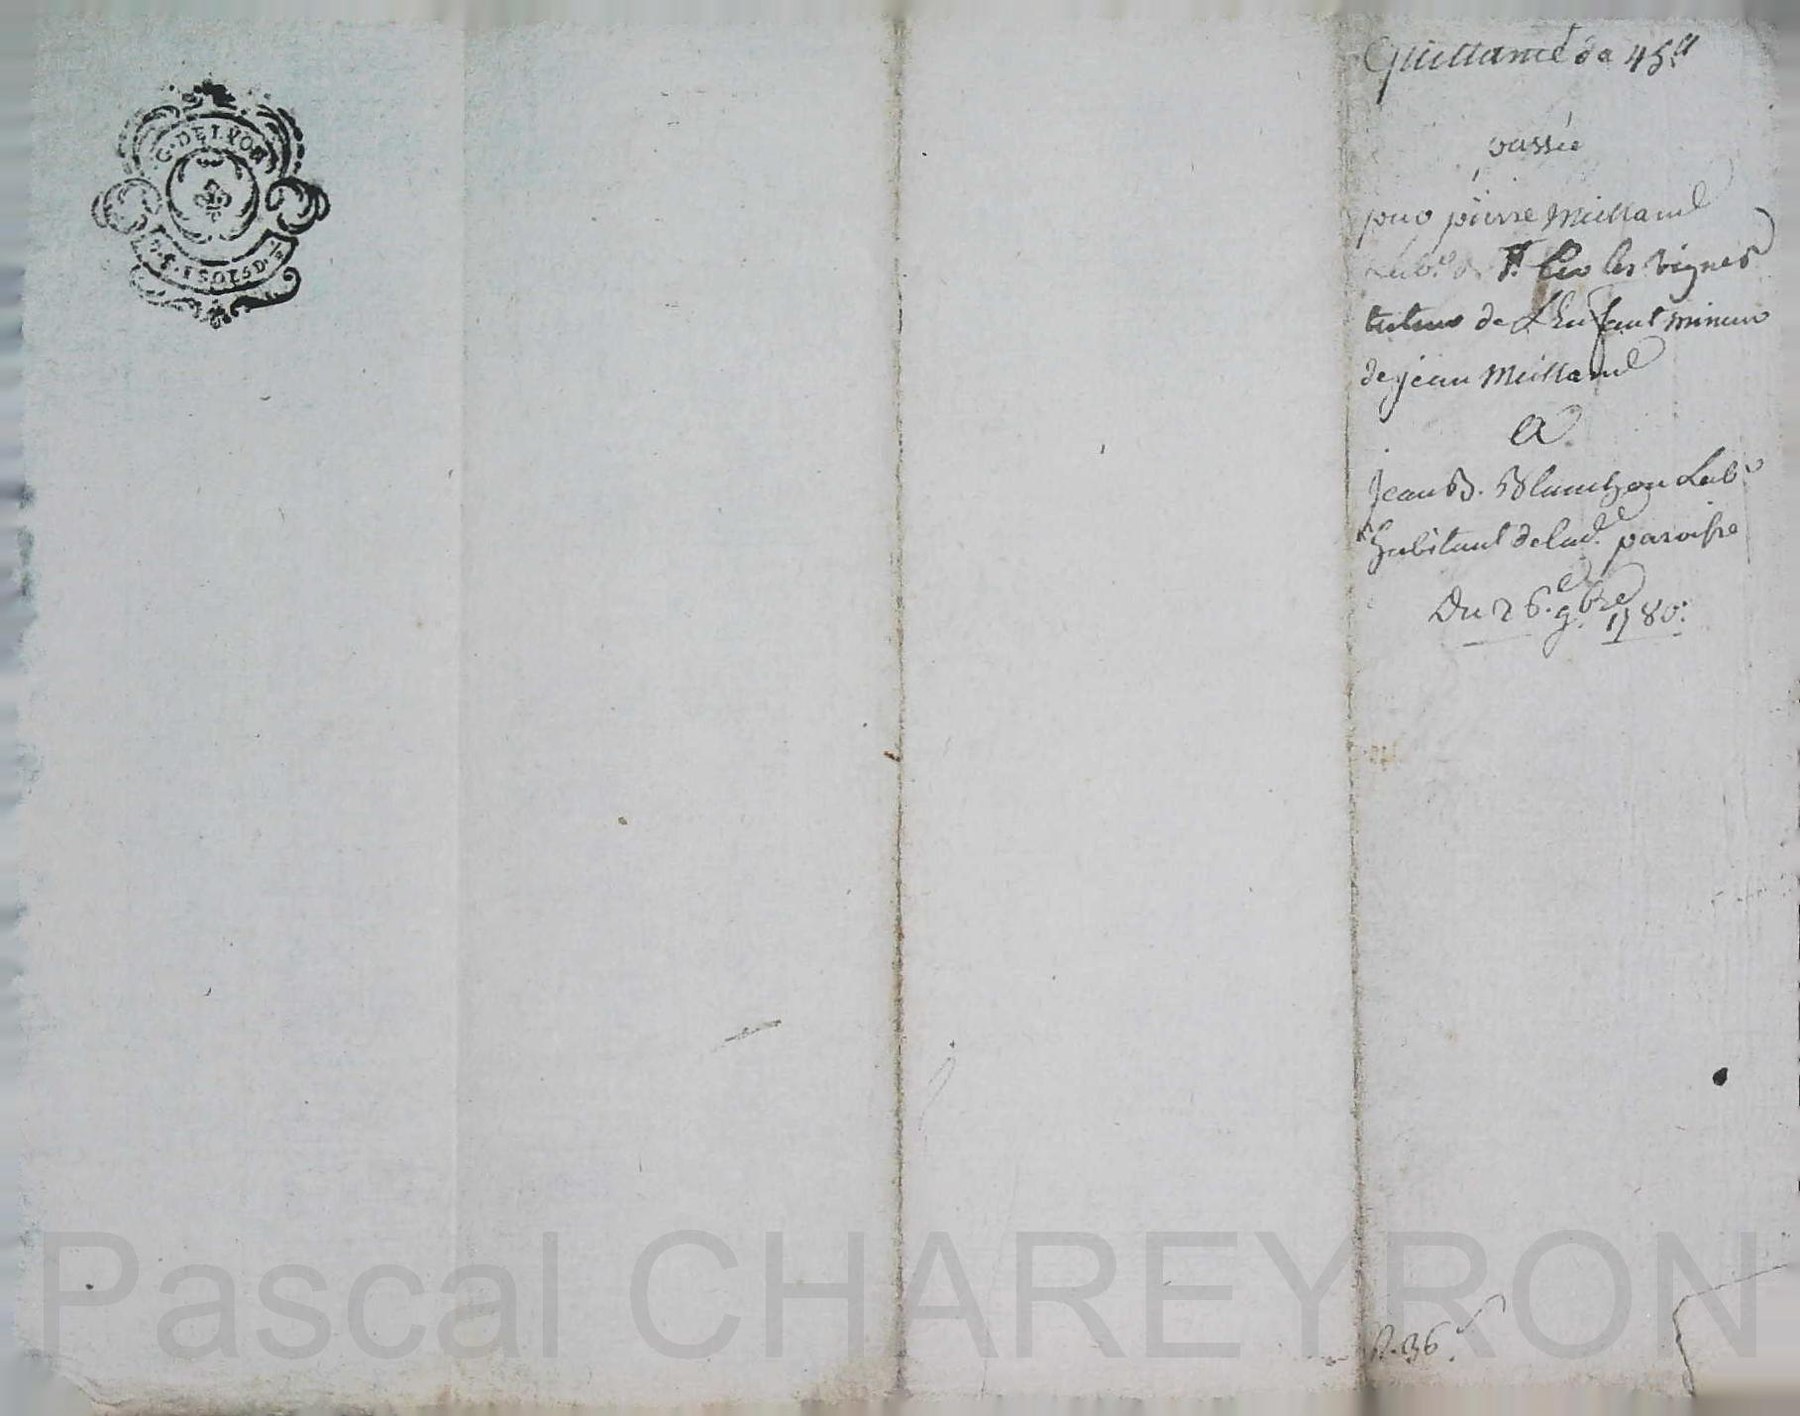 G. DE LYON
Quittance de 45#
passée
par pierre Meilland
Lab.r de St. Leo les vignes
tuteur de L'Enfant mineur
de jean Meilland
A
Jean B. Blanchon Lab.r
habitant de lad.e paroisse
Du 26.e 9.bre 1780.
N. 36.
Pascal CHAREYRON